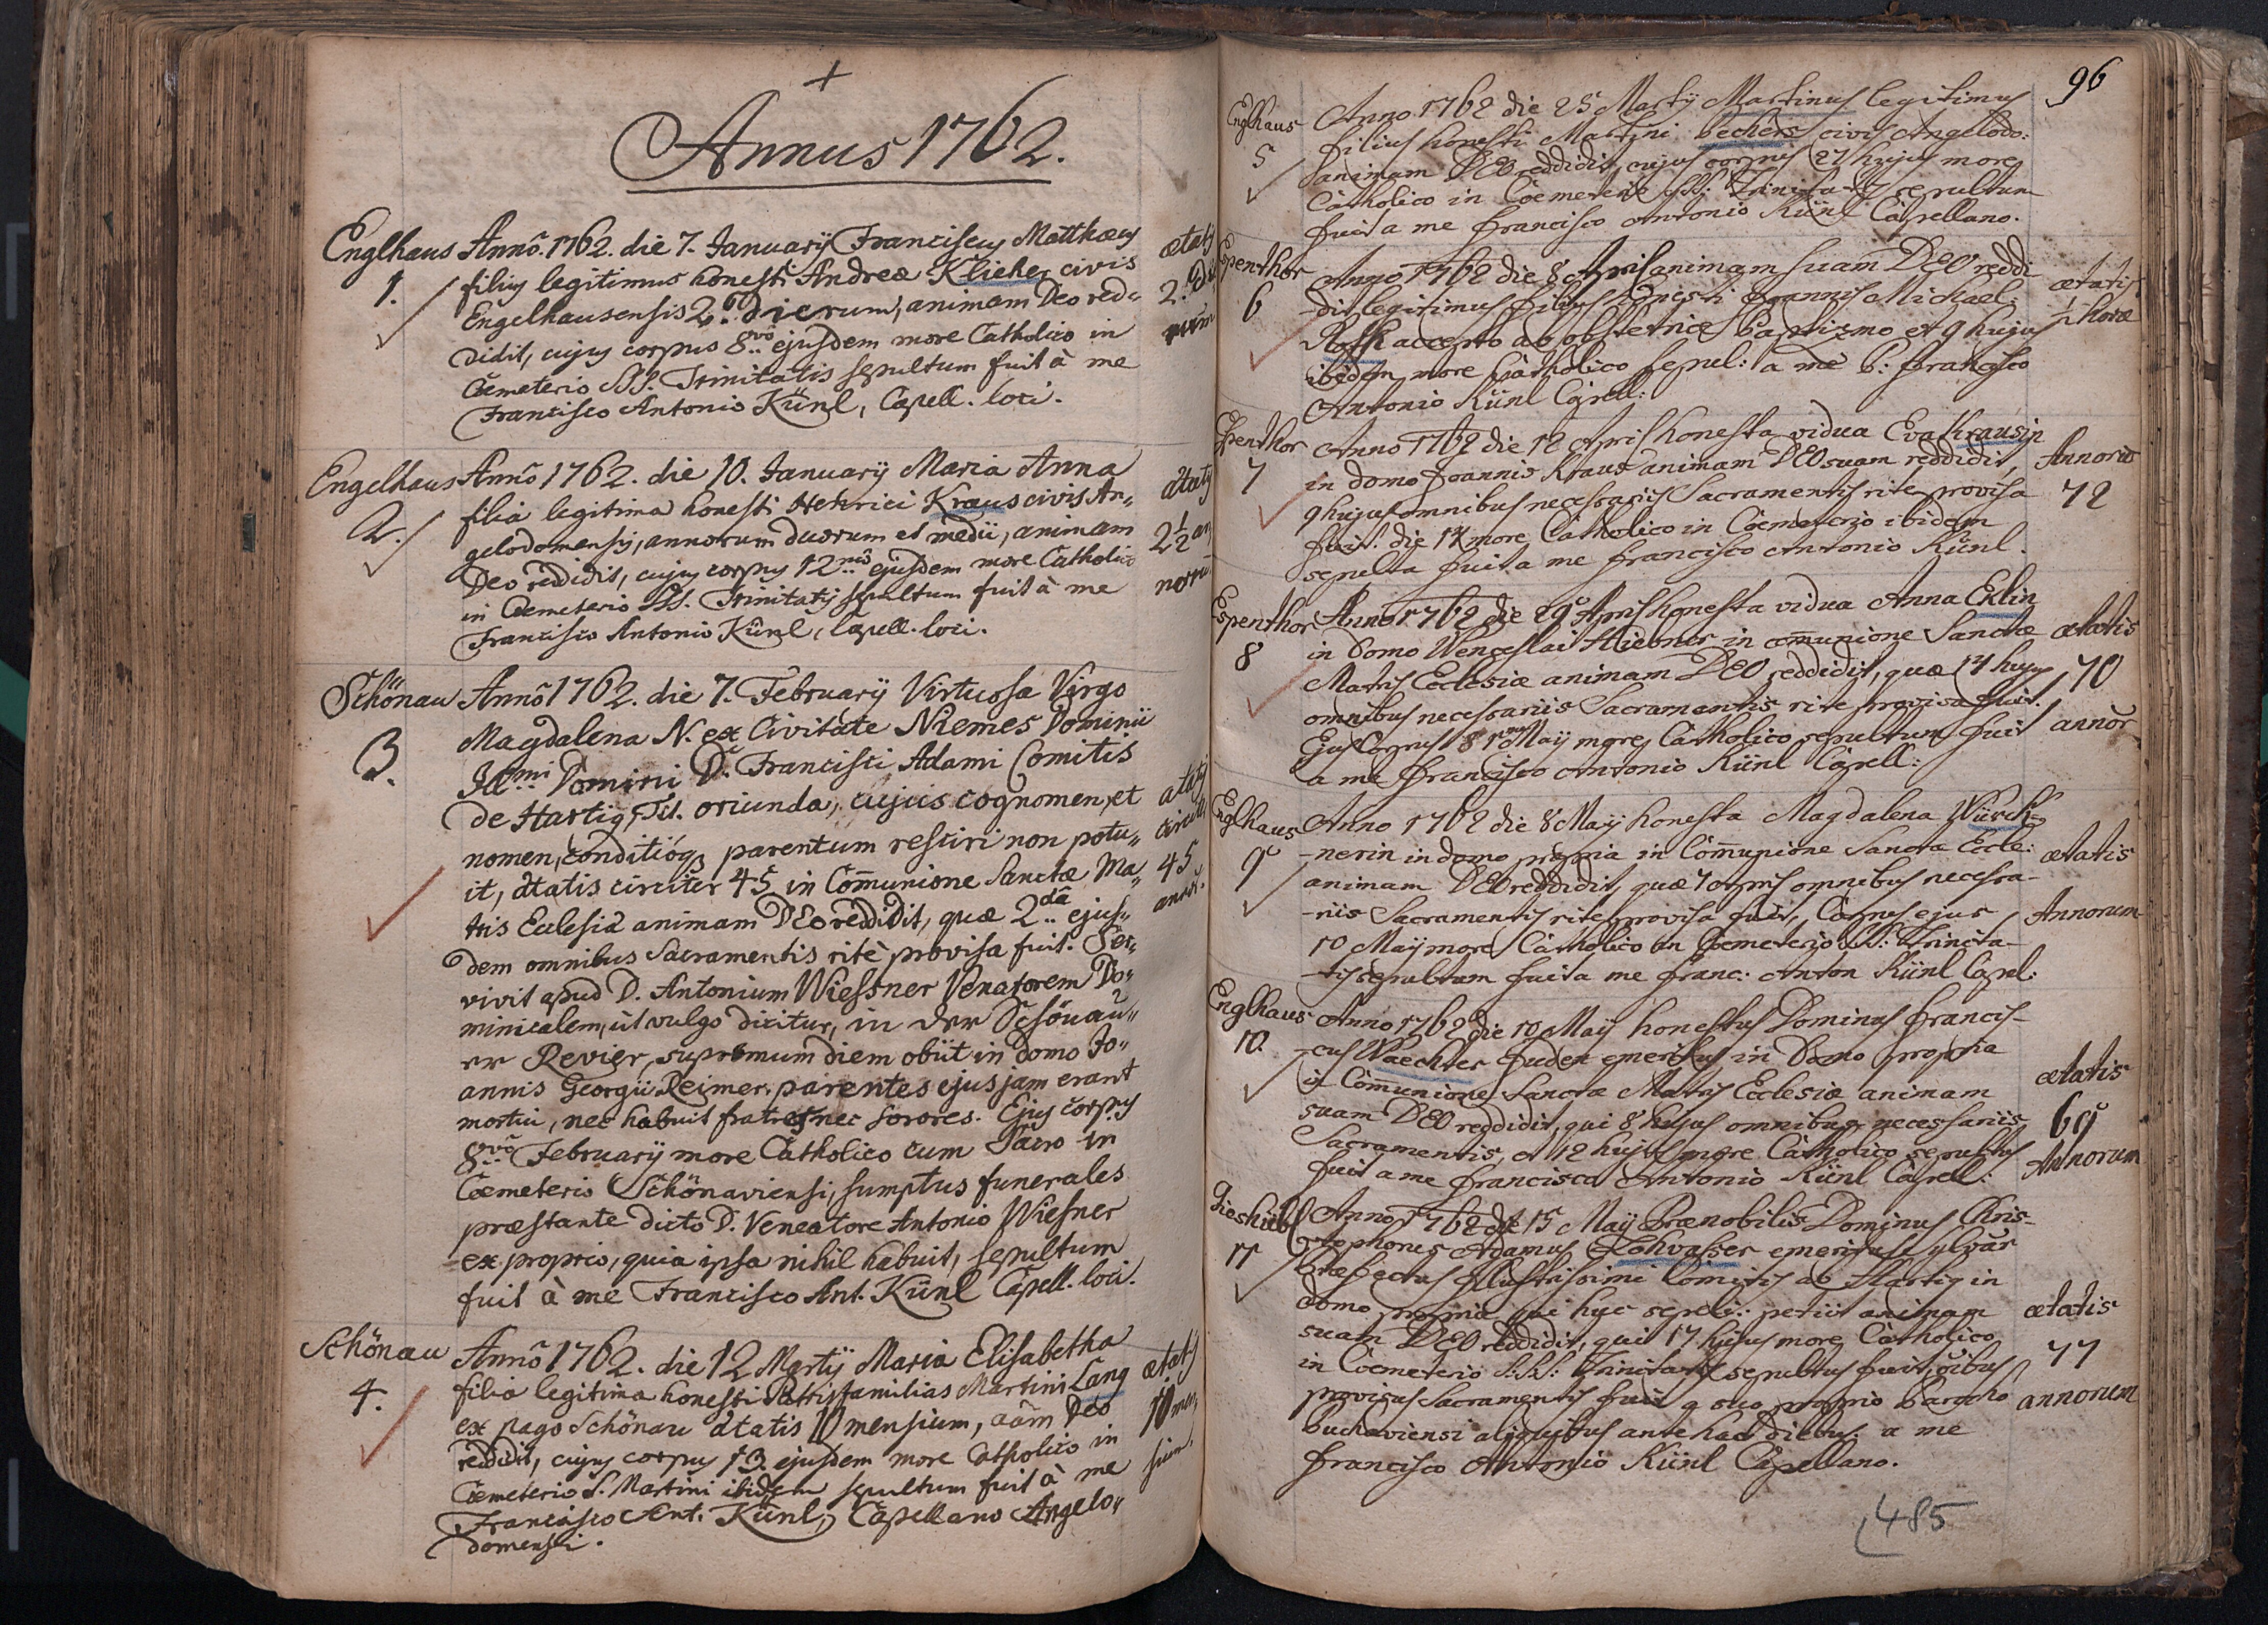 +
Annus 1762.
Englhaus Annô. 1762. die 7. Januarij Franciscus Matthæus ætatis
1. filius legitimus honesti Andreæ Klieber civis 2. die
Engelhausensis 2. dierum, animam Deo red= rum
didit, cujus corpus 8vô ejusdem more Catholico in
Cœmeterio SSS. Trinitatis sepultum fuit à me
Francisco Antonio Künl, Capell. loci.
Engelhaus Annô 1762. die 10. Januarij Maria Anna ætatis
2. filia legitima honesti Henrici Kraus civis An= 2½ an
gelodomensis, annorum duorum et medii, animam noru
Deo reddidit, cujus corpus 12mô ejusdem more Catholico
in Cœmeterio SSS. Trinitatis sepultum fuit à me
Francisco Antonio Künl, Capell. loci.
Schönau Annô 1762. die 7. Februarij Virtuosa Virgo
3. Magdalena N. ex Civitate Niemes Dominii
Illmi Domini D. Francisci Adami Comitis
de Hartig, Tit. oriunda, cujus cognomen, et ætatis
nomen, conditioq3 parentum resciri non potu= circiter
it, ætatis circiter 45 in Com̄unione Sanctæ Ma= 45
tris Ecclesiæ animam DEo reddidit, quæ 2dâ ejus= annor.
dem omnibus Sacramentis ritè provisa fuit. Ser=
vivit apud D. Antonium Wiessner Venatorem Do=
minicalem, ut vulgo dicitur, in der Schönau=
er Revier, supremum diem obiit in domo Jo=
annis Georgii Reimer. parentes ejus jam erant
mortui, nec habuit fratres nec sorores. Ejus corpus
8vô Februarij more Catholico cum Sacro in
Cœmeterio Schönaviensi, sumptus funerales
præstante dicto D. Veneatore Antonio Wiesner
ex proprio, quia ipsa nihil habuit, sepultum
fuit à me Francisco Ant. Künl Capell. loci.
Schönau Annô 1762. die 12 Martij Maria Elisabetha
4. filia legitima honesti Patrisfamilias Martini Lang ætatis
ex pago Schönau ætatis 10 mensium, aām Deo 10 men
reddidit, cujus corpus 13. ejusdem more Catholico in sium
Cœmeterio S. Martini ibidem sepultum fuit à me
Francisco Ant. Künl, Capellano Angelo=
domensi.
96
Englhaus Anno 1762 die 25 Martij Martinus legitimus
5 filius honesti Martini Bechers civis Angelodo:
animam DEO reddidit, cujus corpus 27 hujus more
Catholico in Cœmeterio SSS: Trinitatis sepultum
fuit a me Francisco Antonio Künl Capellano.
Espenthor Anno 1762 die 8 Apris animam suam DEO reddi ætatis
6 -dit legitimus filius honesti Joannis Michael: ½ horæ
Roth accepto ab obstetrice baptizmo et 9 hujus
ibidem more Catholico sepul: a me P: Francisco
Antonio Künl Capell:
Espenthor Anno 1762 die 12 Apris honesta vidua Eva Krausin
7 in domo Joannis Kraus animam DEO suam reddidit, Annorum
9 hujus omnibus necessariis Sacramentis rite provisa 72
fuit. die 14 more Catholico in Cœmeterio ibidem
sepulta fuit a me Francisco Antonio Künl.
Espenthor Anno 1762 die 29 Apris honesta vidua Anna Eklin
8 in Domo Wenceslai Stiebner in com̄unione Sanctæ ætatis
Matris Ecclesiæ animam DEO reddidit, quæ 14 hujus 70
omnibus necessariis Sacramentis rite provisa fuit.
Ejus Corpus 1ma Maij more Catholico sepultum fuit annor
a me Francisco Antonio Künl Capell:
Englhaus Anno 1762 die 8 Maij honesta Magdalena Würck=
9 -nerin in domo propria in Com̄unione Sancta Eccle: ætatis
animam DEO reddidit, quæ 7 omnibus necessa-
-riis Sacramentis rite provisa fuit, Corpus ejus Annorum
10 Maij more Catholico in Cœmeterio SSS: Trinita-
-tis sepultum fuit a me Franc: Anton Künl Capel:
Englhaus Anno 1762 die 10 Maij honestus Dominus Francis-
10. -cus Waechter Judex emeritus in Domo propria
in Com̄unione Sanctæ Matris Ecclesiæ animam ætatis
suam DEO reddidit, qui 8 hujus omnibus necessariis 69
Sacramentis, et 12 hujus more Catholico sepultus Annorum
fuit a me Francisco Antonio Künl Capell:
Gieshübl Anno 1762 die 15 Maij Prænobilis Dominus Chris-
11 -tophorus Adamus Lohvasser emeritus sylvar
Præfectus Illustrissimi Comitis ab Hartig in
domo propria qui huc sepeli: petiit animam ætatis
suam DEO reddidit, qui 17 hujus more Catholico 77
in Cœmeterio S:S:S: Trinitatis sepultus fuit, oibus
provisus Sacramentis fuit a suo proprio Parocho annorum
buchaviensi aliquibus ante hac diebus. a me
Francisco Antonio Künl Capellano.
485